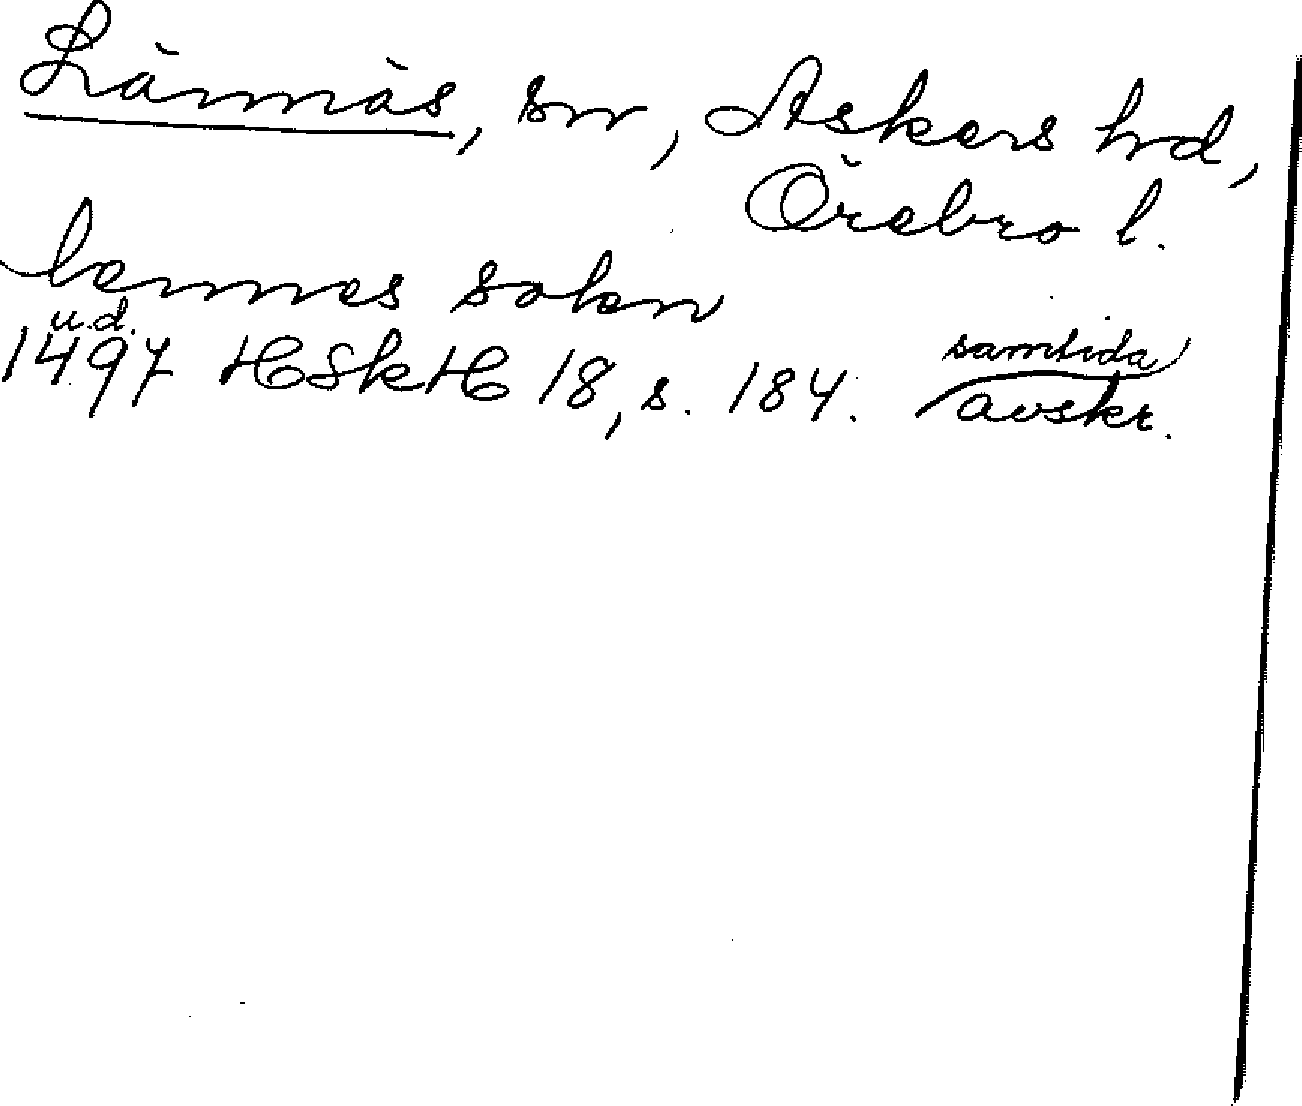 Lännäs, sn, Askers hd,
Örebro l.
lennes sokn
u.d.
1497 HSkH 18, s. 184. samtida
avskr.